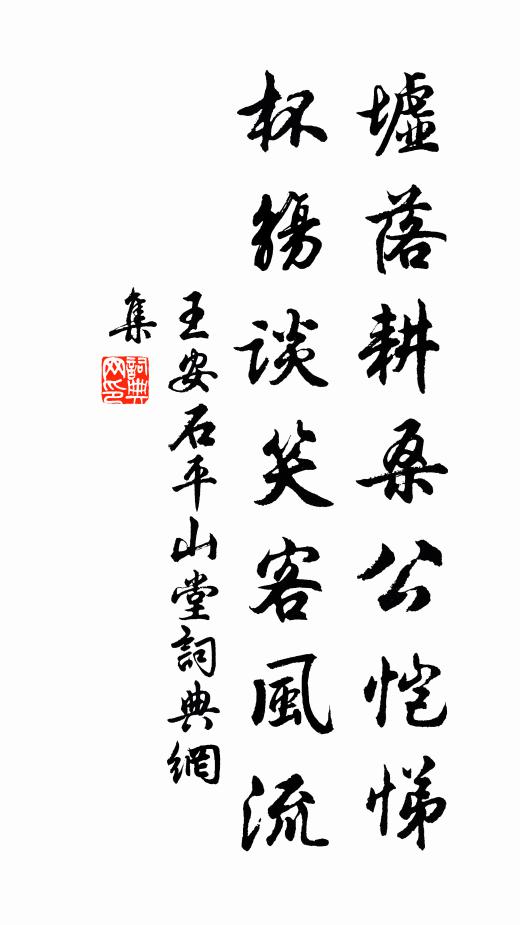 墟落耕桑公恺悌
杯觴談笑客風流
王安石平山堂詞典網
集
詞典网印